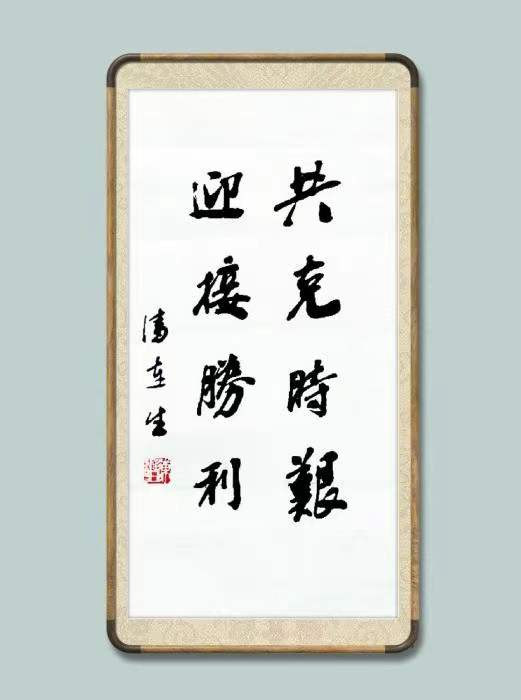 共克時艱
迎接勝利
连生